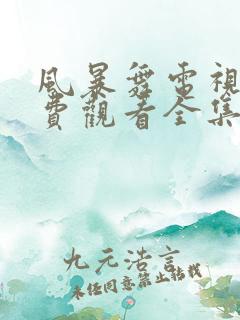 風暴舞電視
費觀看全集
九元浩言
未任同意禁止轉載